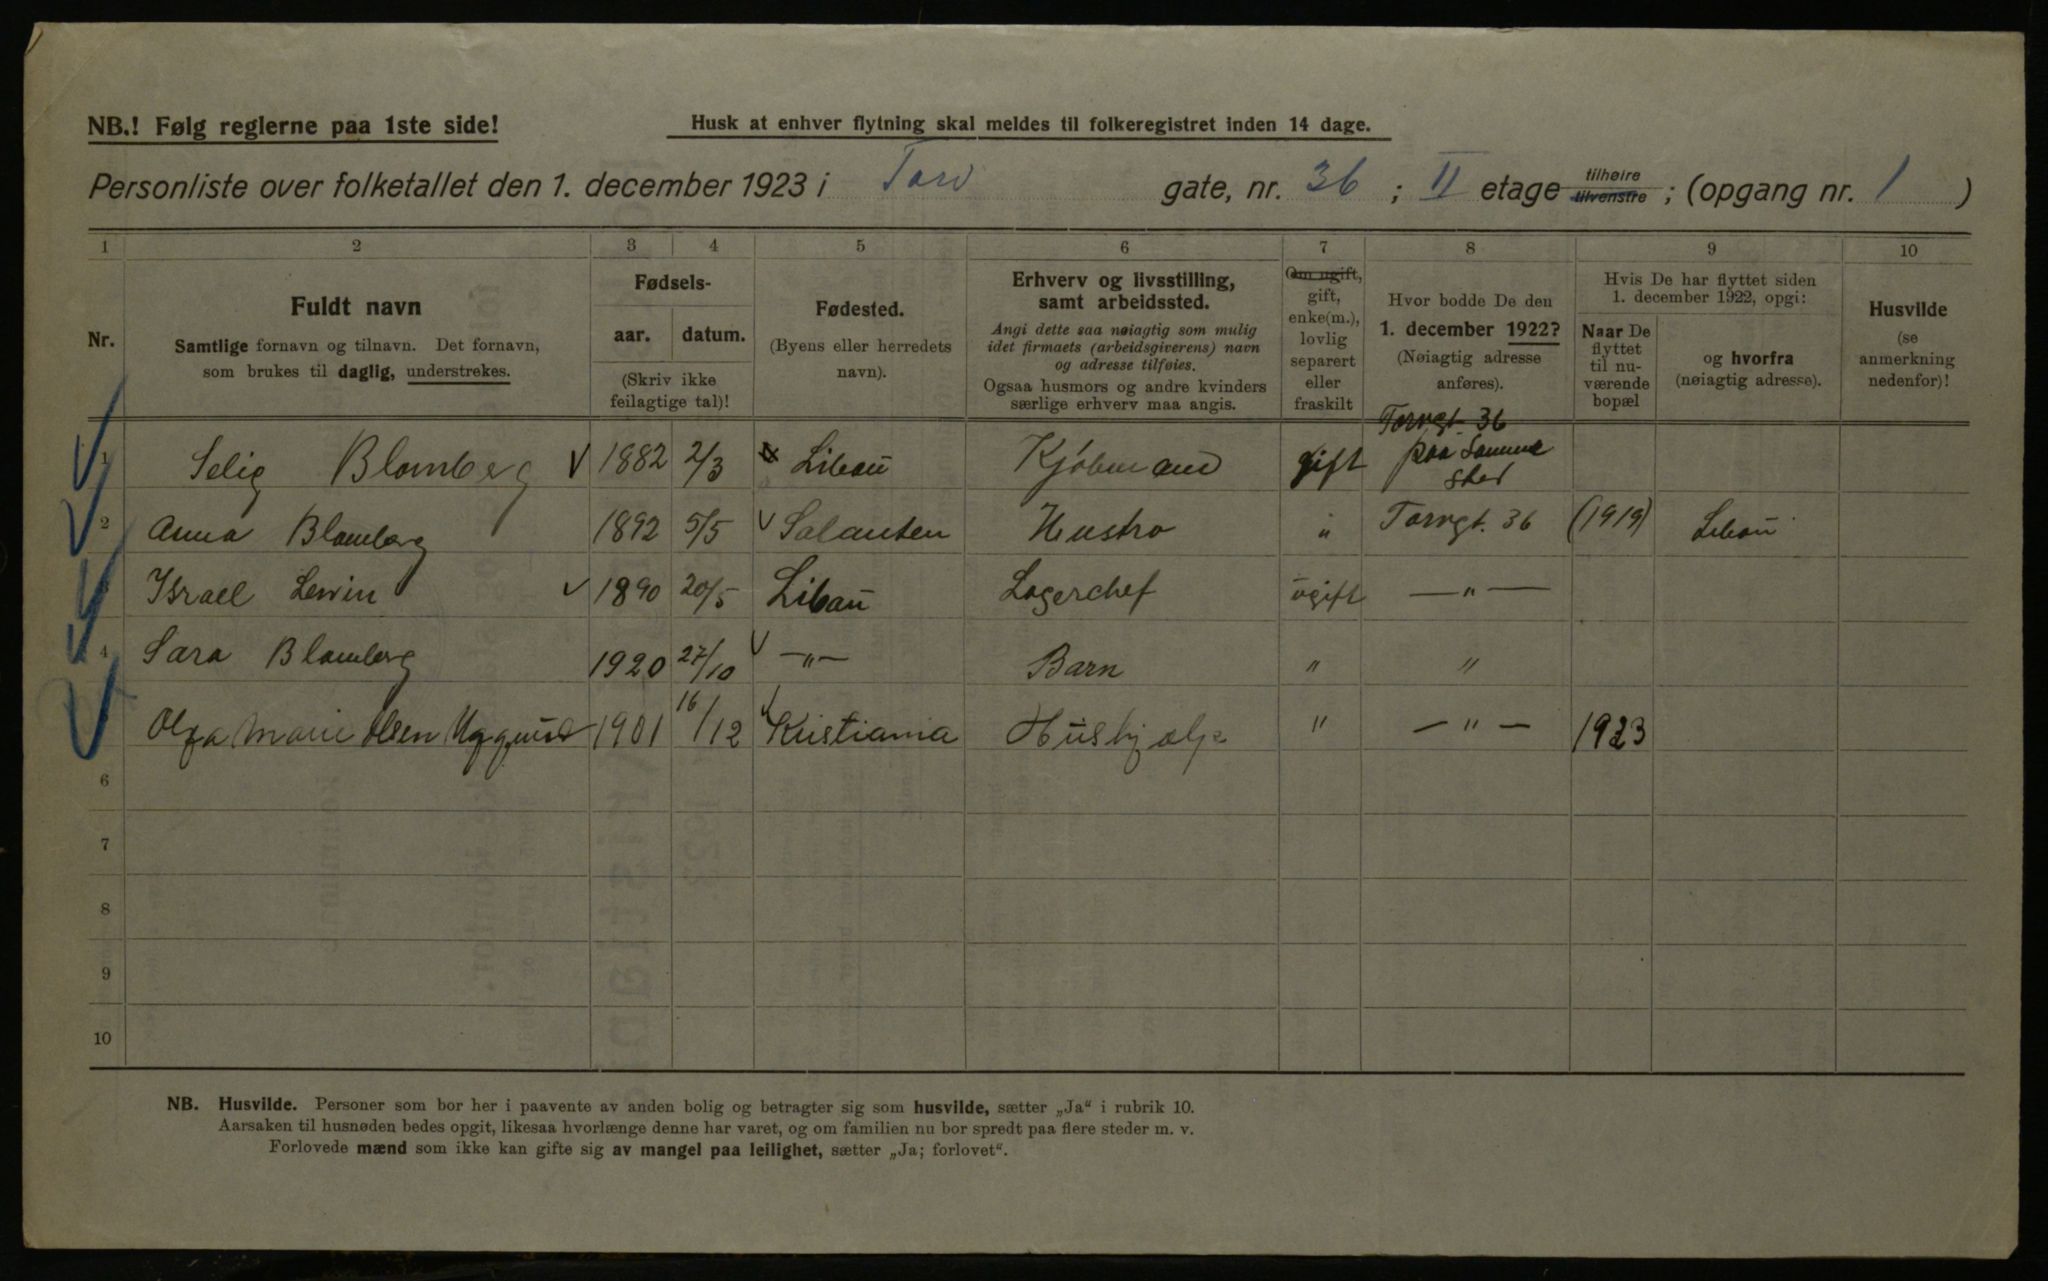 NB.! Følg reglerne paa 1ste side!
Husk at enhver flytning skal meldes til folkeregistret inden 14 dage.
Personliste over folketallet den 1. december 1923 i Torv gate, nr. 36 ; II etage tilhøire tilvenstre ; (opgang nr. 1 )
1 2 3 4 5 6 7 8 9 10
Nr.
Fuldt navn
Samtlige fornavn og tilnavn. Det fornavn,
som brukes til daglig, understrekes.
Fødsels-
aar. datum.
(Skriv ikke
feilagtige tal)!
Fødested.
(Byens eller herredets
navn).
Erhverv og livsstilling,
samt arbeidssted.
Angi dette saa nøiagtig som mulig
idet firmaets (arbeidsgiverens) navn
og adresse tilføies.
Ogsaa husmors og andre kvinders
særlige erhverv maa angis.
Om ugift,
gift,
enke(m.),
lovlig
separert
eller
fraskilt
Hvor bodde De den
1. december 1922?
(Nøiagtig adresse
anføres).
Hvis De har flyttet siden
1. december 1922, opgi:
Naar De
flyttet
til nu-
værende
bopæl
og hvorfra
(nøiagtig adresse).
Husvilde
(se
anmerkning
nedenfor)!
1 Selig Blomberg 1882 2/3 Libau Kjøbmand gift Torvgt. 36 paa Samme sted
2 Anna Blomberg 1892 5/5 Salanten Hustro " Torvgt. 36 (1919) Libau
Israel Lewin 1890 20/5 Libau Lagerchef ugift — " —
4 Sara Blomberg 1920 27/10 — " — Barn " "
Olga Marie Olsen 1901 16/12 Kristiania Hushjælp " — " — 1923
6
7
8
9
10
NB. Husvilde. Personer som bor her i paavente av anden bolig og betragter sig som husvilde, sætter „Ja“ i rubrik 10.
Aarsaken til husnøden bedes opgit, likesaa hvorlænge denne har varet, og om familien nu bor spredt paa flere steder m. v.
Forlovede mænd som ikke kan gifte sig av mangel paa leilighet, sætter „Ja; forlovet“.